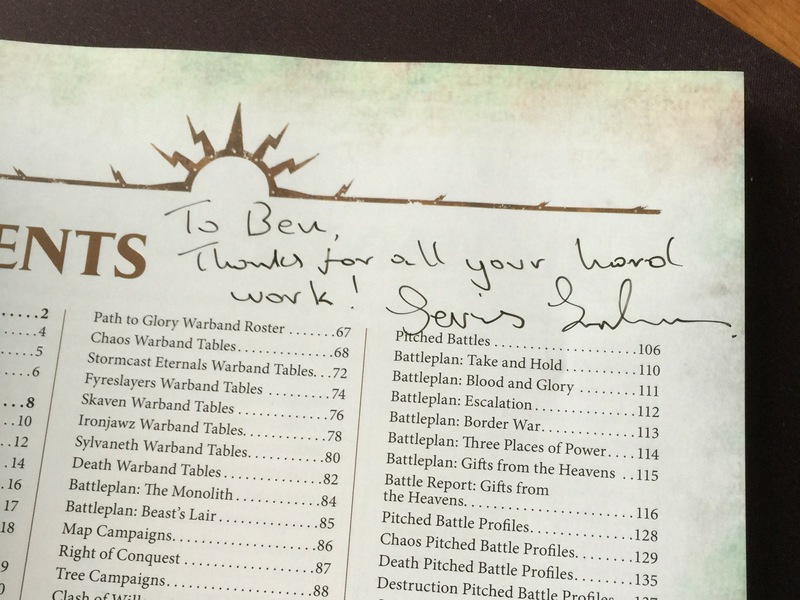 ENTS
To Ben,
Thanks for all your hard
work!
Jervis Johnson.
.....2
....4
....5
....6
...8
...10
...12
..14
..16
17
18
9
0
Path to Glory Warband Roster .......67
Chaos Warband Tables...............68
Stormcast Eternals Warband Tables...72
Fyreslayers Warband Tables .........74
Skaven Warband Tables .............76
Ironjawz Warband Tables............78
Sylvaneth Warband Tables...........80
Death Warband Tables ..............82
Battleplan: The Monolith ............84
Battleplan: Beast's Lair..............85
Map Campaigns....................86
Right of Conquest ..................87
Tree Campaigns....................88
Pitched Battles ....................106
Battleplan: Take and Hold ..........110
Battleplan: Blood and Glory ........111
Battleplan: Escalation..............112
Battleplan: Border War.............113
Battleplan: Three Places of Power....114
Battleplan: Gifts from the Heavens ..115
Battle Report: Gifts from
the Heavens.......................116
Pitched Battle Profiles..............128
Chaos Pitched Battle Profiles........129
Death Pitched Battle Profiles........135
Destruction Pitched Battle Profiles...137